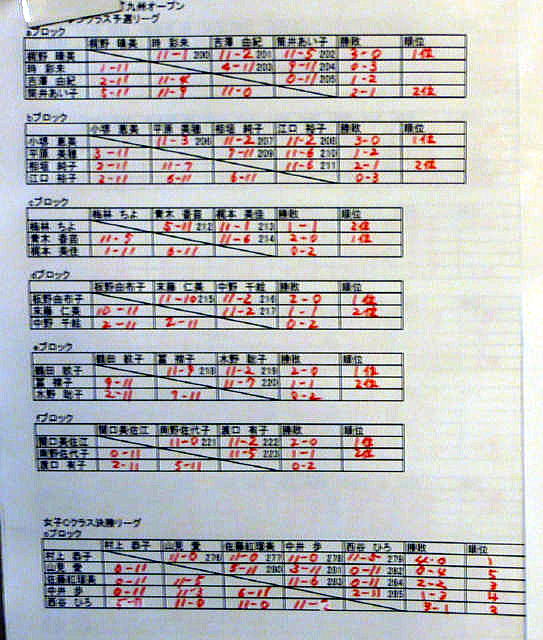 九州オープン
クラス予選リーグ
aブロック
梶野 晴美 時 彩来 吉澤 由紀 筒井あい子 勝敗 順位
梶野 晴美 11-1 200 11-2 201 11-5 202 3-0 1位
時 彩来 1-11 4-11 203 9-11 204 0-3
吉澤 由紀 2-11 11-4 0-11 205 1-2
筒井あい子 5-11 11-9 11-0 2-1 2位
bブロック
小堺 恵美 平原 美穂 相垣 純子 江口 裕子 勝敗 順位
小堺 恵美 11-3 206 11-2 207 11-2 208 3-0 1位
平原 美穂 3-11 7-11 209 11-6 210 1-2
相垣 純子 2-11 11-7 11-6 211 2-1 2位
江口 裕子 2-11 6-11 6-11 0-3
cブロック
梅林 ちよ 青木 香苗 梶本 美佳 勝敗 順位
梅林 ちよ 5-11 212 11-1 213 1-1 2位
青木 香苗 11-5 11-6 214 2-0 1位
梶本 美佳 1-11 6-11 0-2
dブロック
板野由布子 末藤 仁美 中野 千絵 勝敗 順位
板野由布子 11-10 215 11-2 216 2-0 1位
末藤 仁美 10-11 11-2 217 1-1 2位
中野 千絵 2-11 2-11 0-2
eブロック
鶴田 敦子 冨 稚子 水野 聡子 勝敗 順位
鶴田 敦子 11-9 218 11-2 219 2-0 1位
冨 稚子 9-11 11-7 220 1-1 2位
水野 聡子 2-11 7-11 0-2
fブロック
関口美佐江 奥野佐代子 渡口 有子 勝敗 順位
関口美佐江 11-0 221 11-2 222 2-0 1位
奥野佐代子 0-11 11-5 223 1-1 2位
渡口 有子 2-11 5-11 0-2
女子Cクラス決勝リーグ
ブロック
村上 恭子 山見 愛 佐藤和瑠美 中井 歩 西谷 ひろ 勝敗 順位
村上 恭子 11-0 276 11-0 277 11-0 278 11-5 279 4-0 1
山見 愛 0-11 5-11 280 3-11 281 0-11 282 0-4 5
佐藤和瑠美 0-11 11-5 11-6 283 0-11 284 2-2 3
中井 歩 0-11 11-3 6-11 2-11 285 1-3 4
西谷 ひろ 5-11 11-0 11-0 11-2 3-1 2